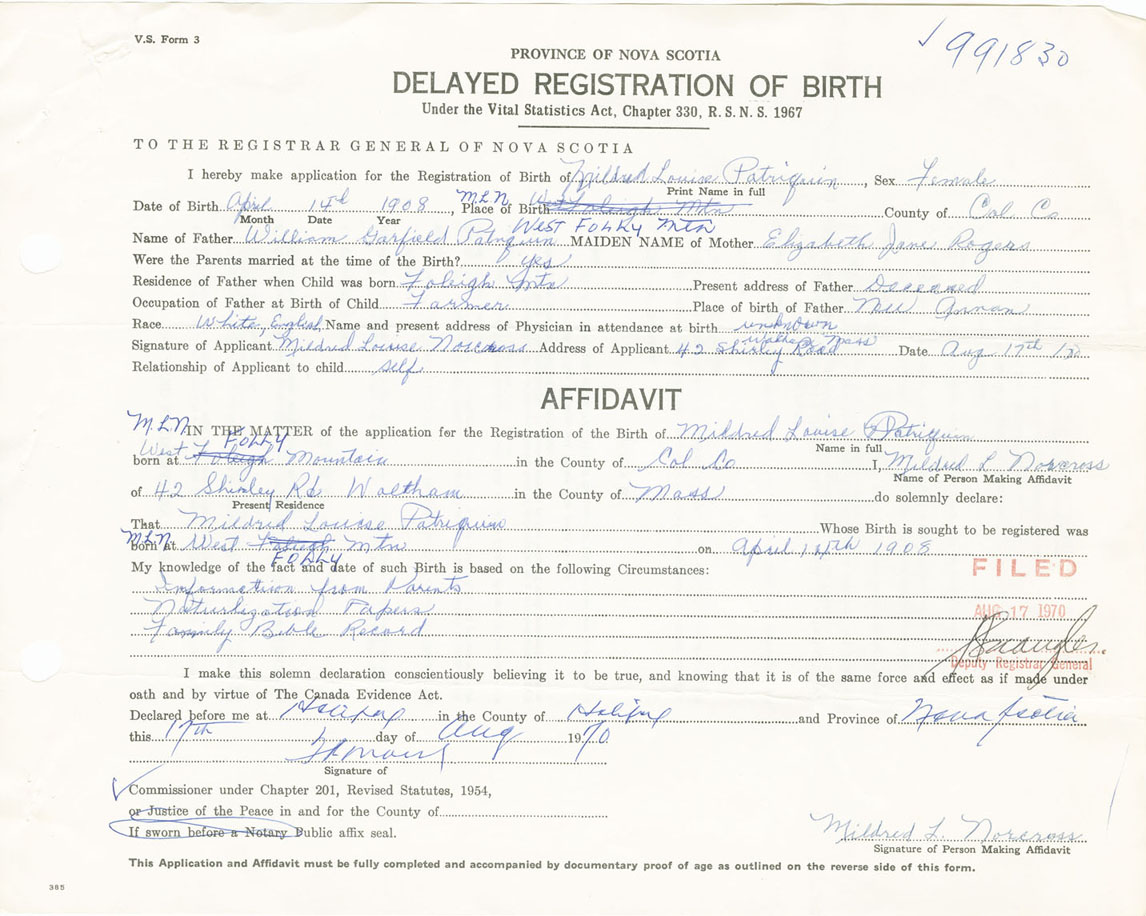 V.S. Form 3
✓ 991830
PROVINCE OF NOVA SCOTIA
DELAYED REGISTRATION OF BIRTH
Under the Vital Statistics Act, Chapter 330, R. S. N. S. 1967
TO THE REGISTRAR GENERAL OF NOVA SCOTIA
I hereby make application for the Registration of Birth of Mildred Louise Patriquin, Sex Female
Print Name in full
Date of Birth April 14th 1908, MLN Place of Birth West Foleigh Mtn County of Col Co
Month Date Year WEST FOLLY MTN
Name of Father William Garfield Patriquin MAIDEN NAME of Mother Elizabeth Jane Rogers
Were the Parents married at the time of the Birth? yes
Residence of Father when Child was born Foleigh Mtn Present address of Father Deceased
Occupation of Father at Birth of Child Farmer Place of birth of Father New Annan
Race White, English Name and present address of Physician in attendance at birth unknown
Signature of Applicant Mildred Louise Norcross Address of Applicant 42 Shirley Road Waltham Mass Date Aug 17th
Relationship of Applicant to child self
AFFIDAVIT
M.L.N. IN THE MATTER of the application for the Registration of the Birth of Mildred Louise Patriquin
Name in full
FOLLY
born at West Foleigh Mountain in the County of Col Co I, Mildred L Norcross
Name of Person Making Affidavit
of 42 Shirley Rd Waltham in the County of Mass do solemnly declare:
Present Residence
That Mildred Louise Patriquin Whose Birth is sought to be registered was
MLN born at West Foleigh Mtn on April 14th 1908
FOLLY
My knowledge of the fact and date of such Birth is based on the following Circumstances:
Information from Parents
Naturlization Papers
Family Bible Record
FILED
AUG 17 1970
Deputy Registrar General
I make this solemn declaration conscientiously believing it to be true, and knowing that it is of the same force and effect as if made under
oath and by virtue of The Canada Evidence Act.
Declared before me at Halifax in the County of Halifax and Province of Nova Scotia
this 17th day of Aug 1970
Signature of
✓ Commissioner under Chapter 201, Revised Statutes, 1954,
or Justice of the Peace in and for the County of
If sworn before a Notary Public affix seal.
Mildred L. Norcross
Signature of Person Making Affidavit
This Application and Affidavit must be fully completed and accompanied by documentary proof of age as outlined on the reverse side of this form.
385